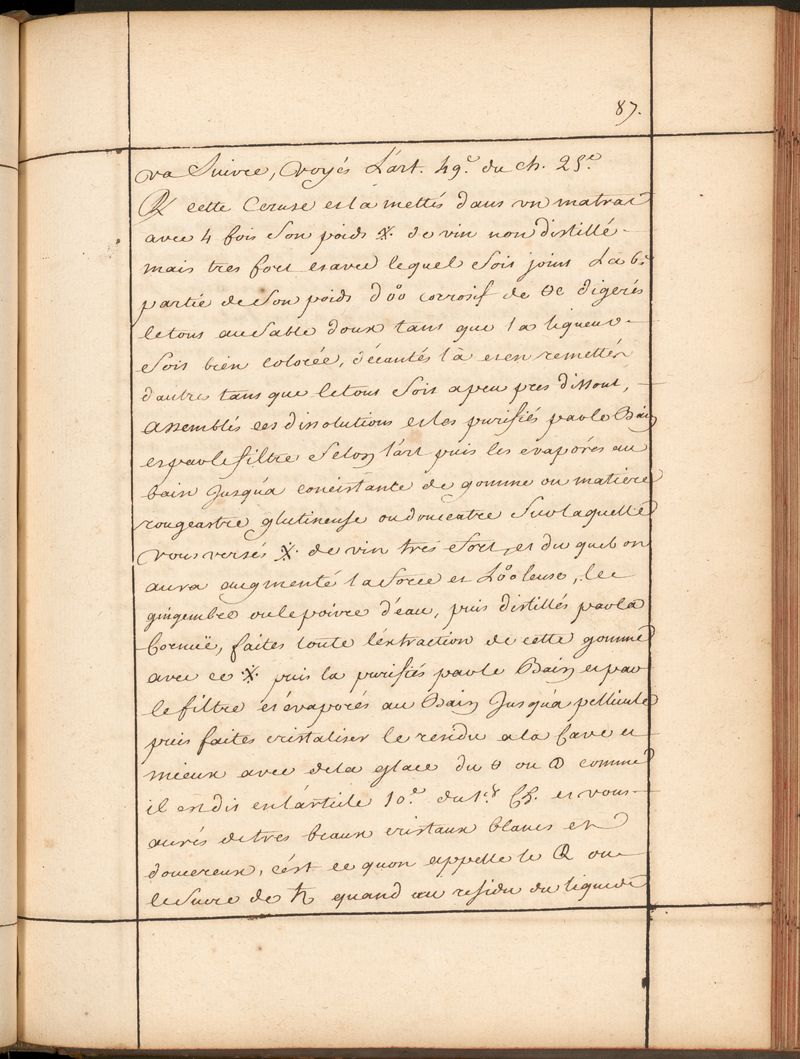 87.
va Suivre, voyés L'art. 49.e du ch. 25.e
℞ cette Ceruse et la mettés dans vn matras
avec 4 fois Son poids ⁜ de vin non distillé
mais tres fort et avec lequel Soit joint La 6e
partie de Son poids d'oo corrosif de Θc digerés
le tout au Sable doux tant que la liqueur
Soit bien colorée, décantés la et en remettés
d'autre tant que le tout Soit a peu pres dissout,
assemblés ces dissolutions et les purifiés par le Bain
et par le filtre Selon l'art puis les evaporés au
bain Jusqu'a concistante de gomme ou matiere
rougeastre glutineuse ou douceatre Sur laquelle
vous versés ⁜ de vin très fort, et du quel on
aura augmenté la force et L'ooleuse, le
gingembre ou le poivre d'eau, puis distillés par la
Cornuë, faites toute l'éxtraction de cette gomme
avec ce ⁜ puis la purifiés par le Bain et par
le filtre et évaporés au Bain Jusqu'a pellicule
puis faites cristaliser le rendu a la Cave et
mieux avec de la glace du Θ ou comme
il est dit en l'article 10.e du 1.er Ch. et vous
aurés de tres beaux cristaux blancs et
doucereux, c'ést ce qu'on appelle le ou
le Sucre de ♄ quand au residu du liquide